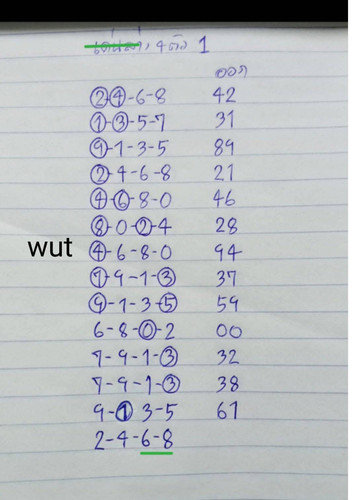 4 ตัว 1
ออก
2-4-6-8 42
1-3-5-7 31
9-1-3-5 89
2-4-6-8 21
4-6-8-0 46
8-0-2-4 28
wut 4-6-8-0 94
7-9-1-3 37
9-1-3-5 59
6-8-0-2 00
7-9-1-3 32
7-9-1-3 38
9-1 3-5 61
2-4-6-8